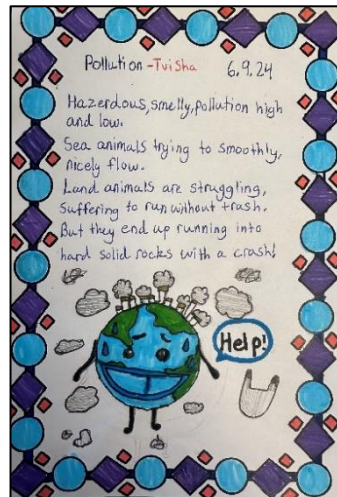 Pollution -Tvisha 6.9.24
Hazerdous, smelly, pollution high
and low.
Sea animals trying to smoothly,
nicely flow.
Land animals are struggling,
suffering to run without trash.
But they end up running into
hard solid rocks with a crash!
Help!